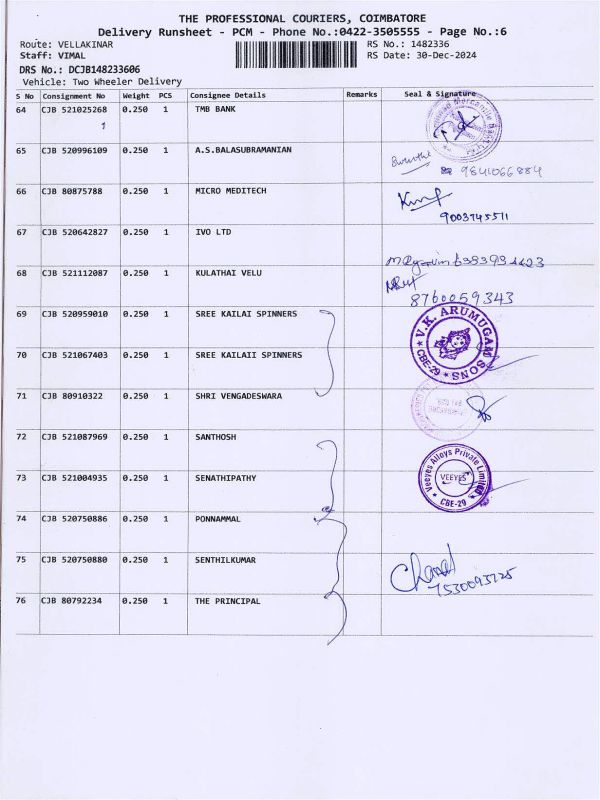 THE PROFESSIONAL COURIERS, COIMBATORE
Delivery Runsheet - PCM - Phone No.:0422-3505555 - Page No.:6
Route: VELLAKINAR
RS No.: 1482336
Staff: VIMAL
RS Date: 30-Dec-2024
DRS No.: DCJB148233606
Vehicle: Two Wheeler Delivery
S No Consignment No Weight PCS Consignee Details Remarks Seal & Signature
64 CJB 521025268 0.250 1 TMB BANK
1
65 CJB 520996109 0.250 1 A.S.BALASUBRAMANIAN
9841066884
66 CJB 80875788 0.250 1 MICRO MEDITECH
9003745511
67 CJB 520642827 0.250 1 IVO LTD
6383934423
68 CJB 521112087 0.250 1 KULATHAI VELU
8760059343
69 CJB 520959010 0.250 1 SREE KAILAI SPINNERS
V.K. ARUMUGAM SONS
★ CBE-29 ★
70 CJB 521067403 0.250 1 SREE KAILAII SPINNERS
71 CJB 80910322 0.250 1 SHRI VENGADESWARA
72 CJB 521087969 0.250 1 SANTHOSH
73 CJB 521004935 0.250 1 SENATHIPATHY
Veeyes Alloys Private Limited
VEEYES
★ CBE-29 ★
74 CJB 520750886 0.250 1 PONNAMMAL
75 CJB 520750880 0.250 1 SENTHILKUMAR
76 CJB 80792234 0.250 1 THE PRINCIPAL